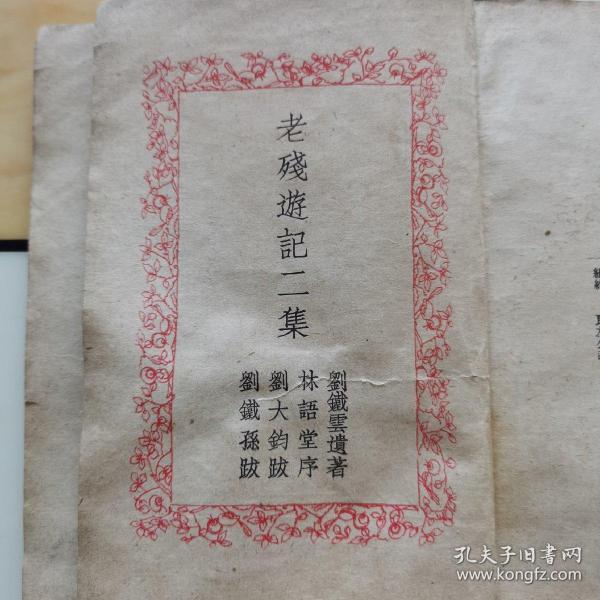 老殘遊記二集
劉鐵雲遺著
林語堂序
劉大鈞跋
劉鐵孫跋
孔夫子旧书网
www.kongfz.com